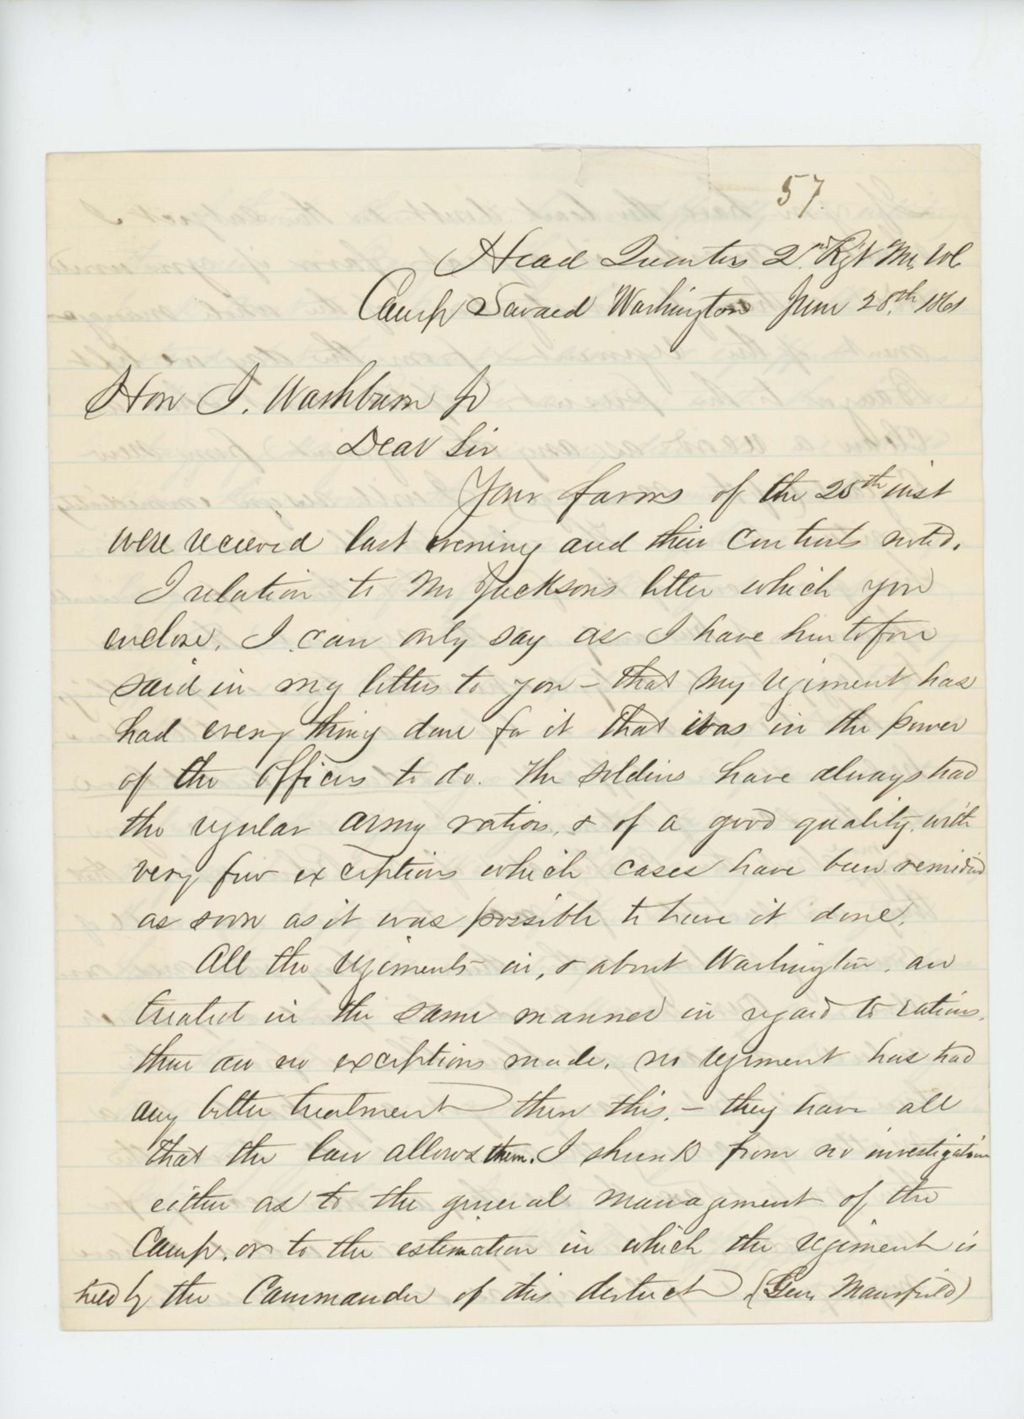 57.
Head Quarters 2nd Rgt Me Vol
Camp Seward Washington June 28th. 1861
Hon I. Washburn Jr
Dear Sir
Your favors of the 25th inst
were recieved last evening and their contents noted.
I relation to Mr Jacksons letter which you
enclose. I can only say as I have heretofore
said in my letters to you - that my regiment has
had every thing done for it that it was in the power
of the Officers to do. The soldiers have always had
the regular army rations, & of a good quality, with
very few exceptions which cases have been remidied
as soon as it was possible to have it done.
All the regiments in, & about Washington, are
treated in the same manner in regard to rations.
there are no exceptions made. no regiment has had
any better treatment then this. - they have all
that the law allows them. I shrink from no investigation
either as to the general management of the
Camp. or to the estimation in which the regiment is
held by the Commander of this district (Gen. Mansfield)